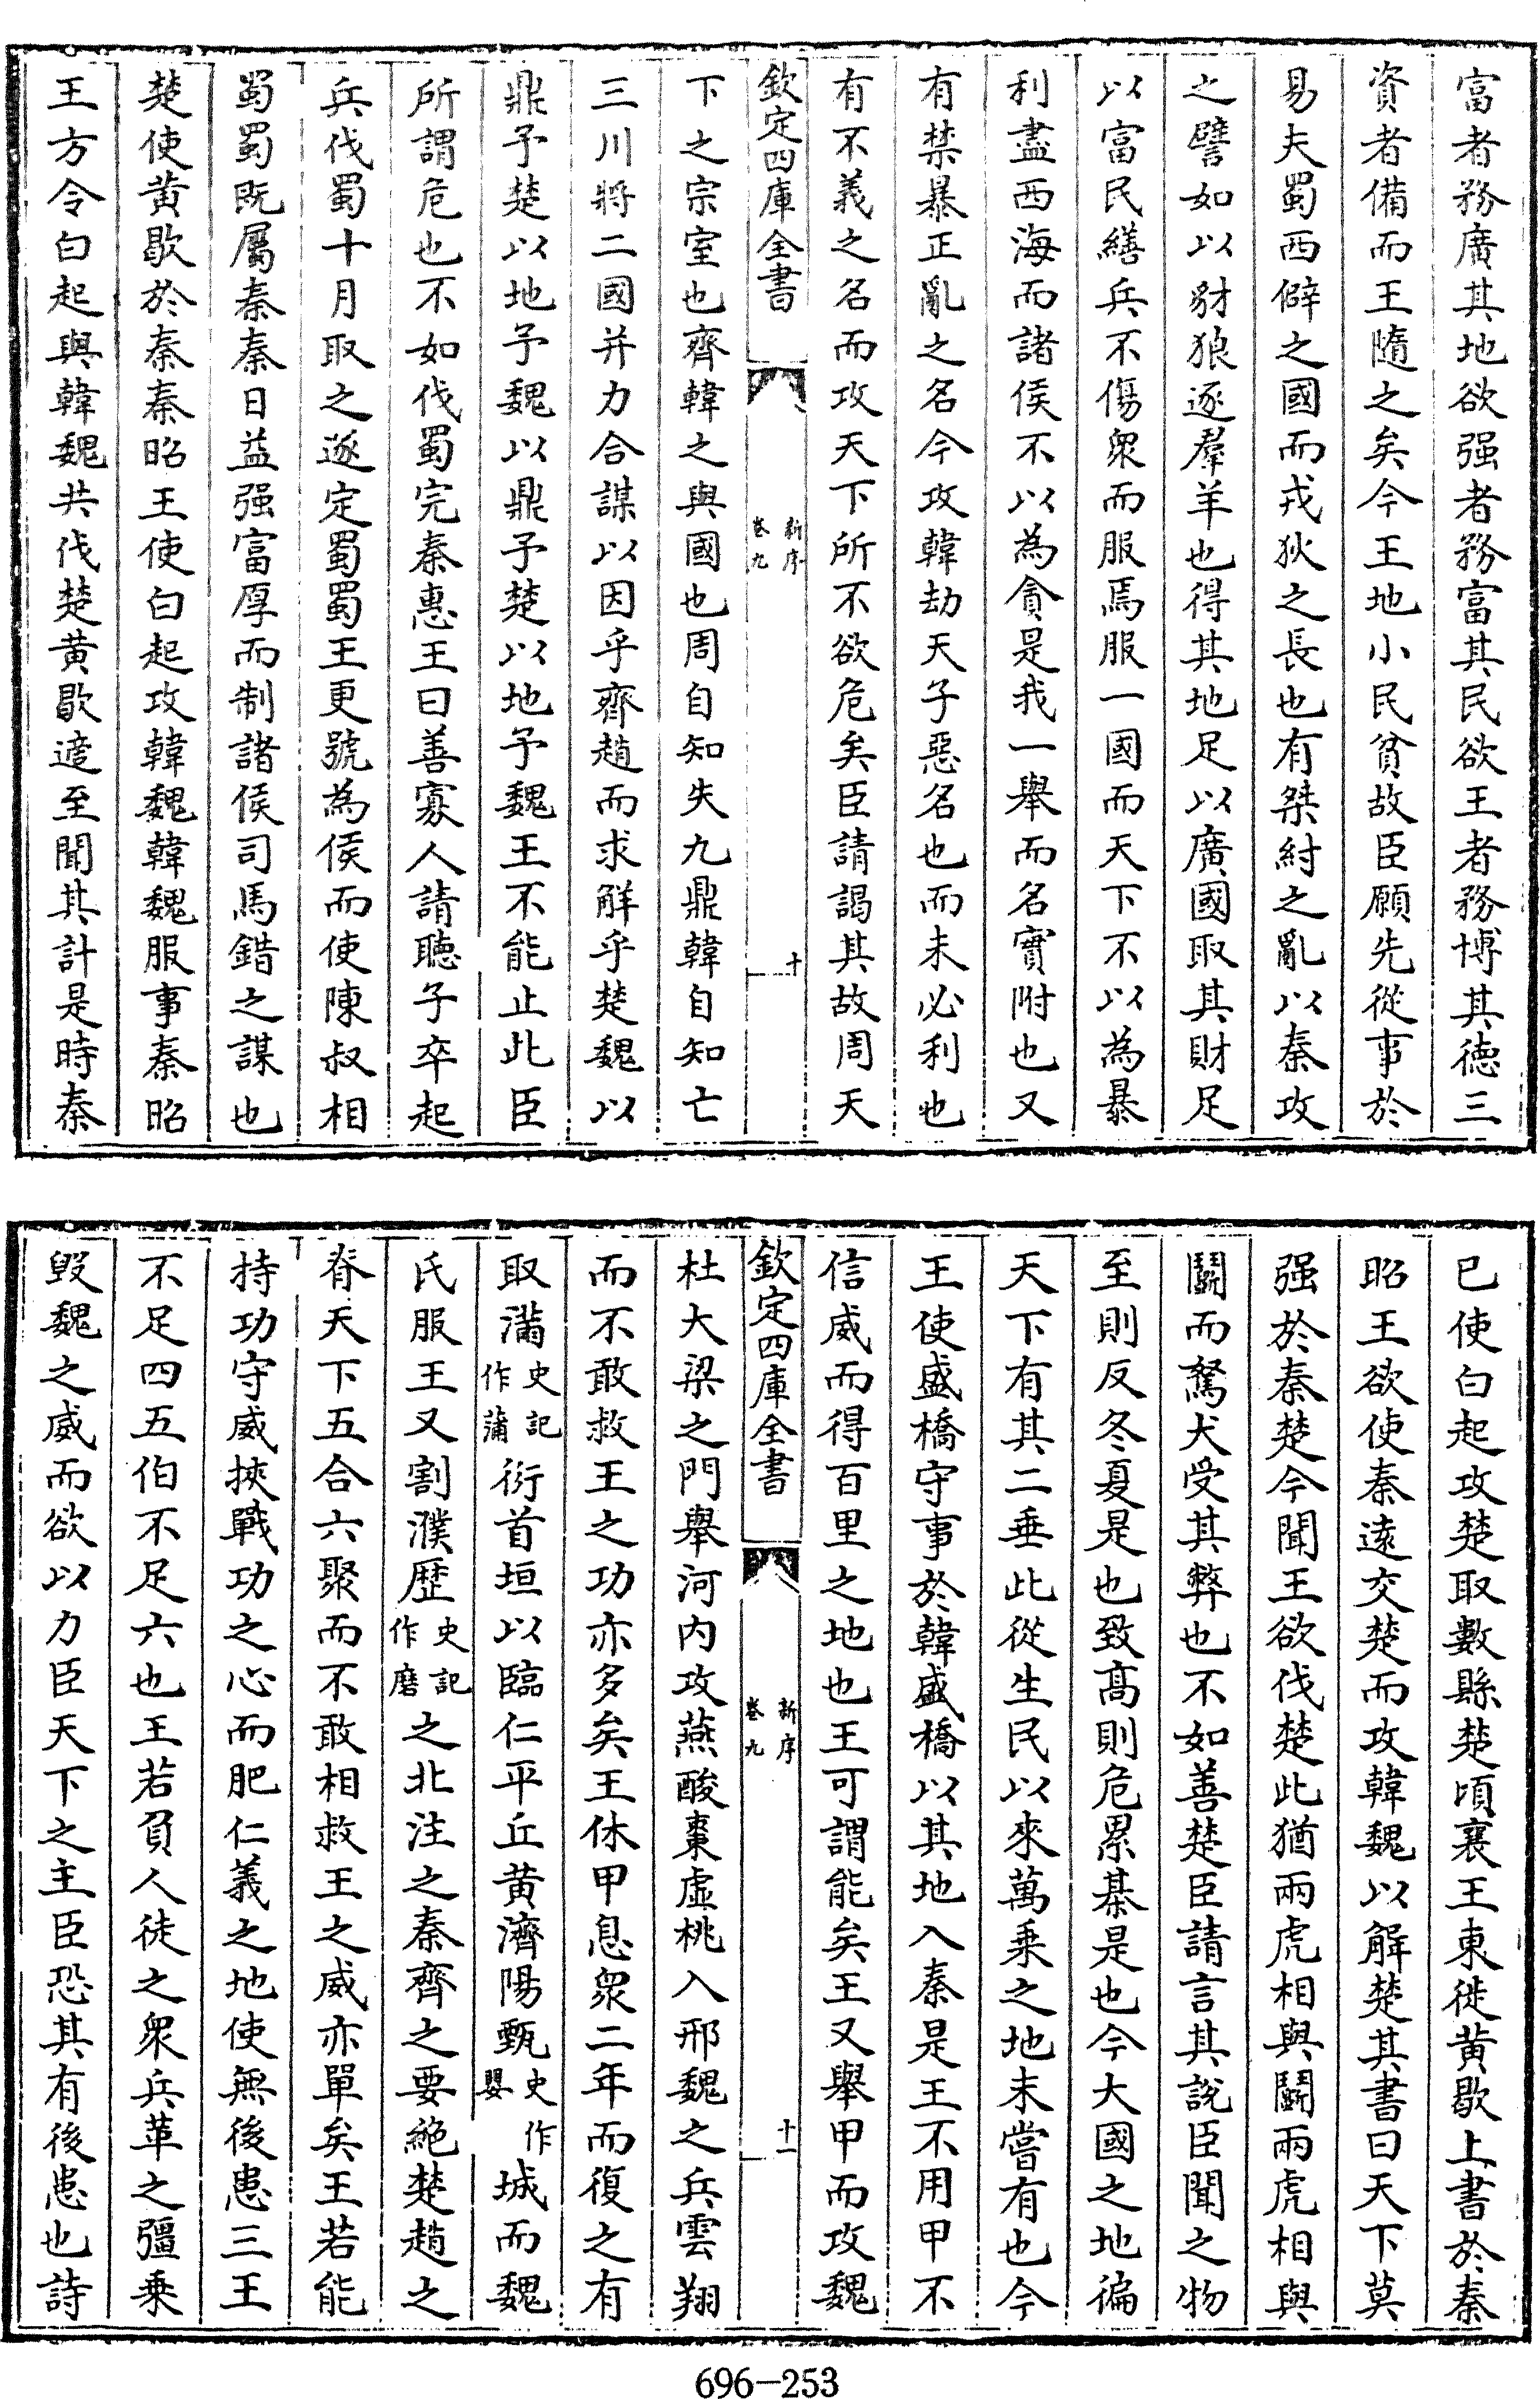 富者務廣其地欲强者務富其民欲王者務博其徳三
資者備而王隨之矣今王地小民貧故臣願先從事於
易夫蜀西僻之國而戎狄之長也有桀紂之亂以秦攻
之譬如以豺狼逐羣羊也得其地足以廣國取其財足
以富民繕兵不傷衆而服焉服一國而天下不以為暴
利盡西海而諸侯不以為貪是我一舉而名實附也又
有禁暴正亂之名今攻韓劫天子惡名也而未必利也
有不義之名而攻天下所不欲危矣臣請謁其故周天
欽定四庫全書
新序
卷九
十
下之宗室也齊韓之與國也周自知失九鼎韓自知亡
三川將二國并力合謀以因乎齊趙而求解乎楚魏以
鼎予楚以地予魏以鼎予楚以地予魏王不能止此臣
所謂危也不如伐蜀完秦惠王曰善寡人請聽子卒起
兵伐蜀十月取之遂定蜀蜀王更號為侯而使陳叔相
蜀蜀既屬秦秦日益强富厚而制諸侯司馬錯之謀也
楚使黄歇於秦秦昭王使白起攻韓魏韓魏服事秦昭
王方令白起與韓魏共伐楚黄歇適至聞其計是時秦
已使白起攻楚取數縣楚頃襄王東徙黄歇上書於秦
昭王欲使秦逺交楚而攻韓魏以解楚其書曰天下莫
强於秦楚今聞王欲伐楚此猶兩虎相與鬬兩虎相與
鬬而駑犬受其弊也不如善楚臣請言其說臣聞之物
至則反冬夏是也致髙則危累棊是也今大國之地徧
天下有其二垂此從生民以來萬乗之地未嘗有也今
王使盛橋守事於韓盛橋以其地入秦是王不用甲不
信威而得百里之地也王可謂能矣王又舉甲而攻魏
欽定四庫全書
新序
卷九
十一
杜大梁之門舉河内攻燕酸棗虚桃入邢魏之兵雲翔
而不敢救王之功亦多矣王休甲息衆二年而復之有
取滿史記作蒲衍首垣以臨仁平丘黄濟陽甄史作嬰城而魏
氏服王又割濮歴史記作磨之北注之秦齊之要絶楚趙之
脊天下五合六聚而不敢相救王之威亦單矣王若能
持功守威挾戰功之心而肥仁義之地使無後患三王
不足四五伯不足六也王若負人徒之衆兵革之彊乗
毀魏之威而欲以力臣天下之主臣恐其有後患也詩
696-253